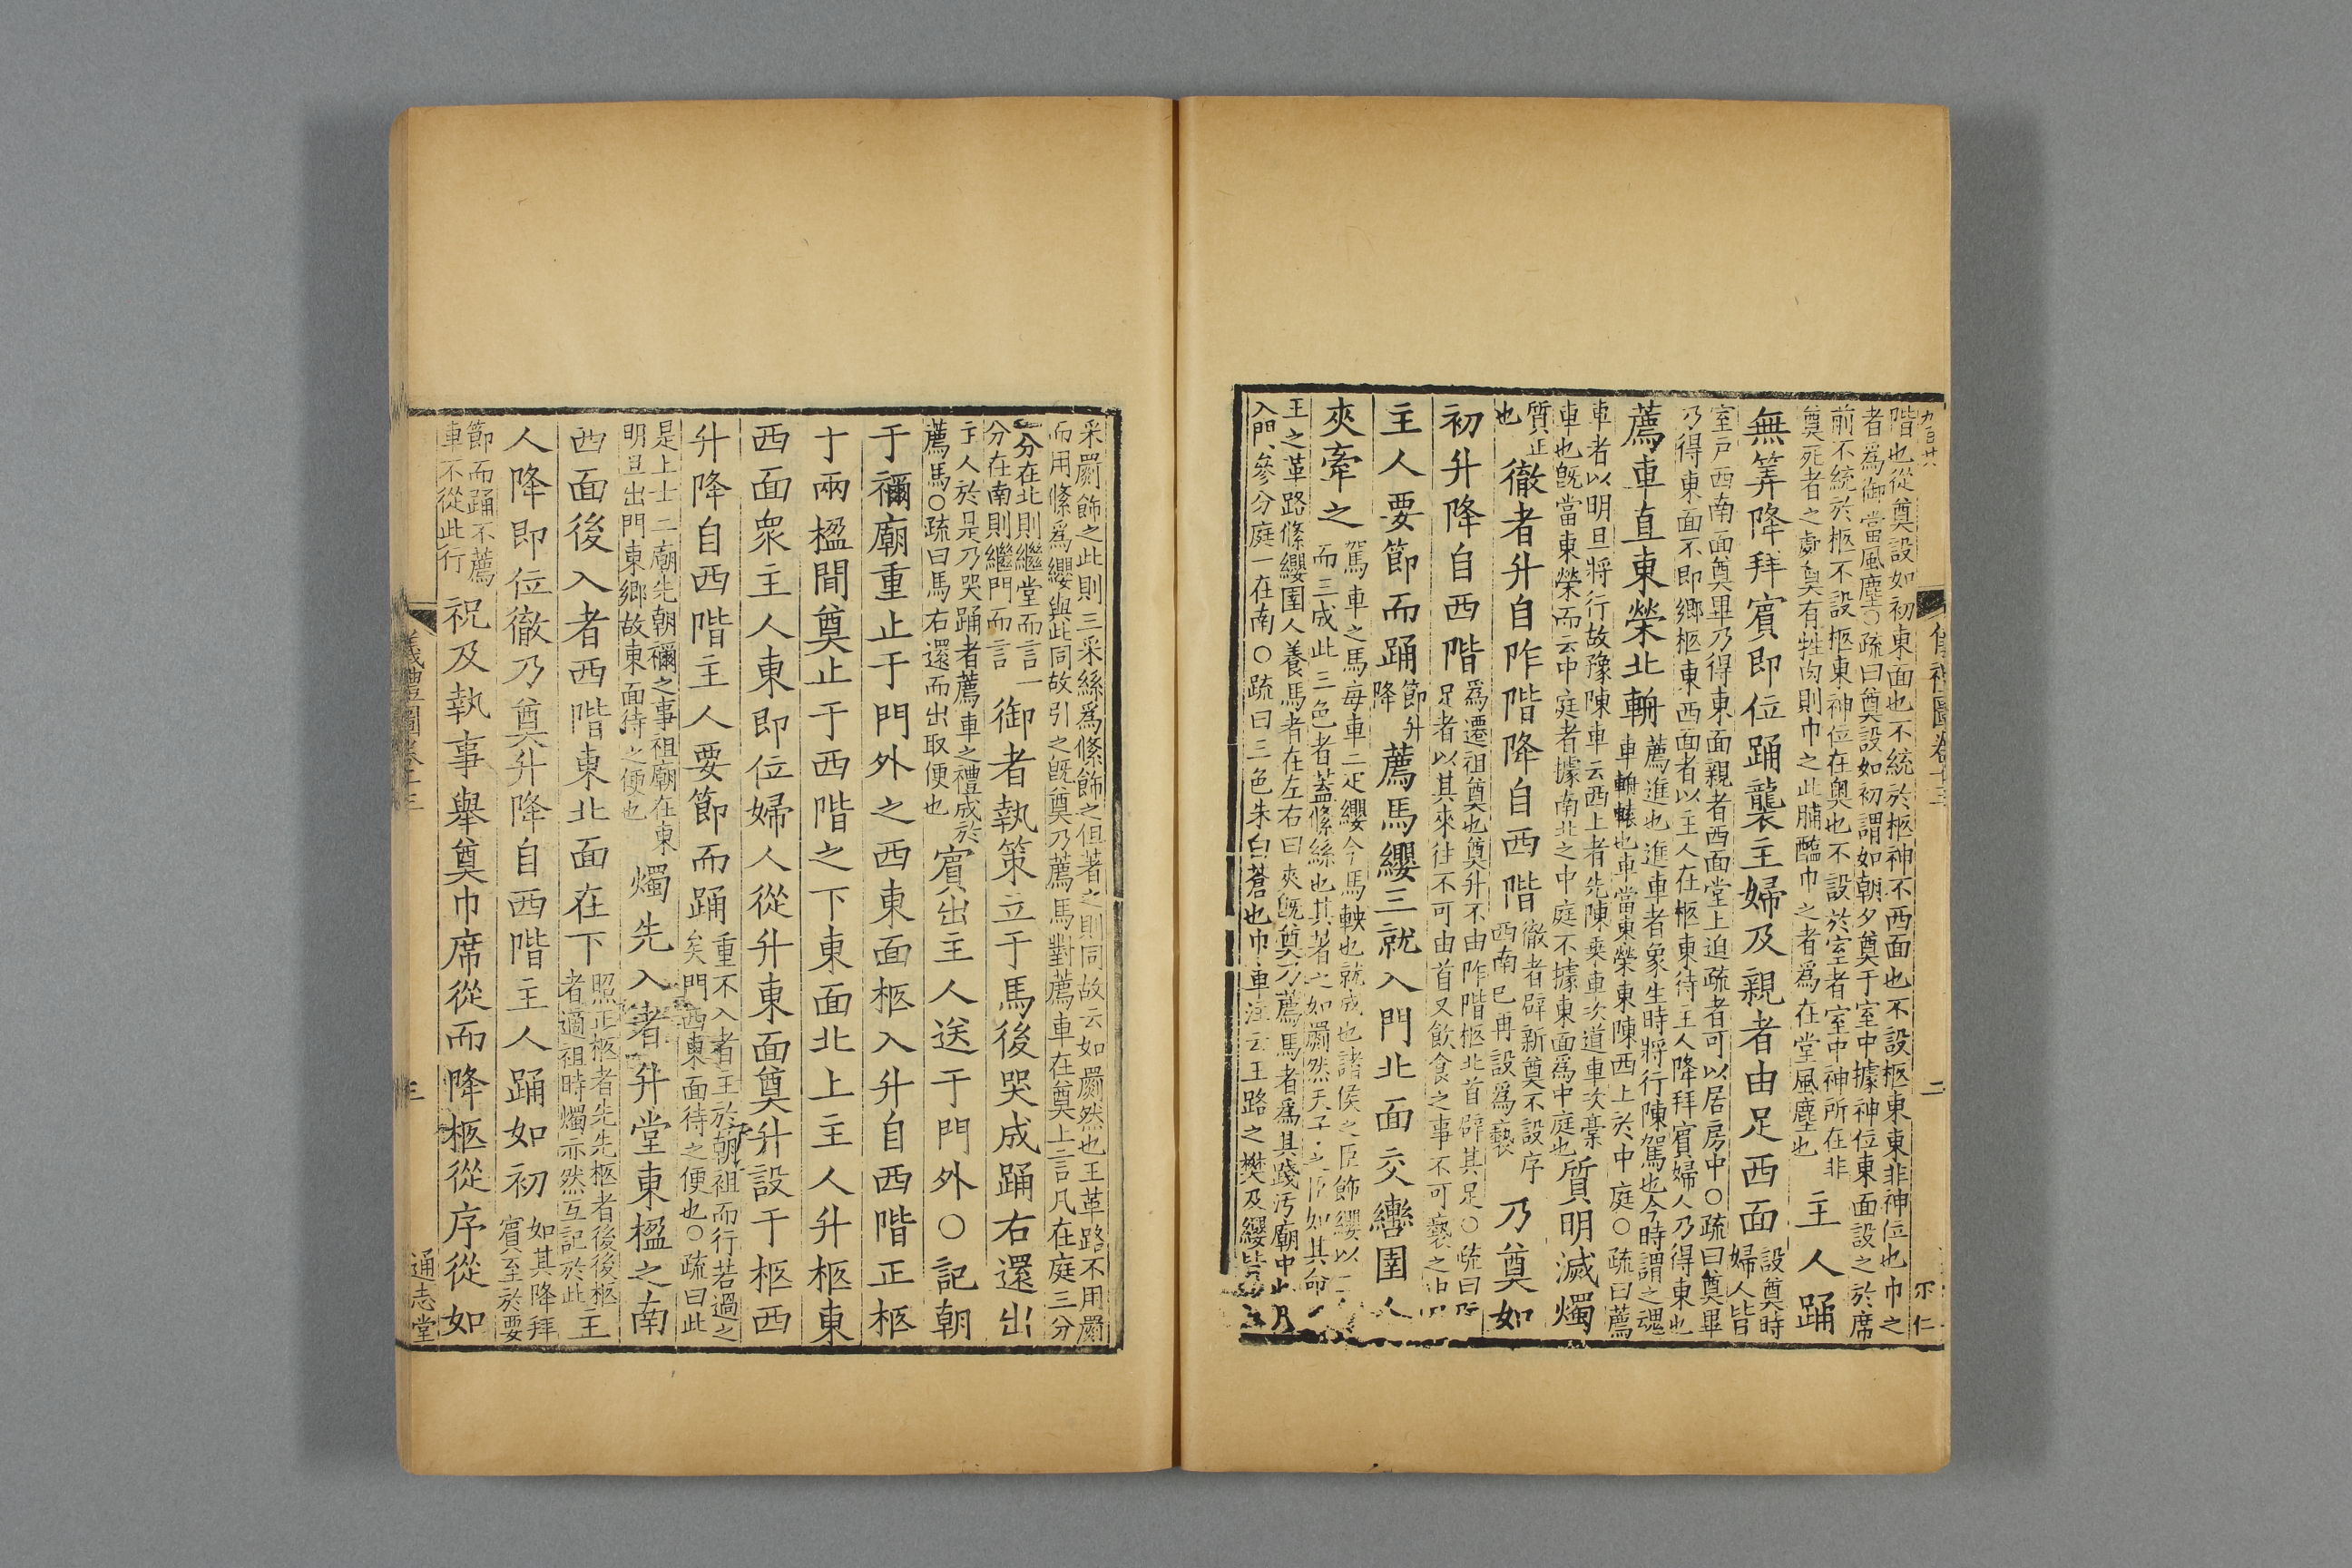 階也從奠設如初東面也不統於柩神不西面也不設柩東東非神位也巾之
者爲御當風塵○疏曰奠設如初謂如朝夕奠于室中據神位東面設之於席
前不統於柩不設柩東神位在奧也不設於室者室中神所在非
奠死者之處奠有牲肉則巾之此脯醢巾之者爲在堂風塵也
主人踊
無筭降拜賓即位踊襲主婦及親者由足西面
設奠時
婦人皆
室戸西南面奠畢乃得東面親者西面堂上迫疏者可以居房中○疏曰奠畢
乃得東面不即鄉柩東西面者以主人在柩東待主人降拜賓婦人乃得東也
薦車直東榮北輈
薦進也進車者象生時將行陳駕也今時謂之魂
車輈轅也車當東榮東陳西上於中庭○疏曰薦
車者以明旦將行故豫陳車云西上者先陳乘車次道車次槀
車也旣當東榮而云中庭者據南北之中庭不據東面爲中庭也
質明滅燭
質正
也
徹者升自阼階降自西階
徹者辟新奠不設序
西南巳再設爲褻
乃奠如
初升降自西階
爲遷祖奠也奠升不由阼階柩北首辟其足○疏曰
足者以其來往不可由首又飲食之事不可褻之
主人要節而踊
節升
降
薦馬纓三就入門北面交轡圉人
夾牽之
駕車之馬每車二疋纓今馬鞅也就成也諸侯之臣飾纓以
而三成此三色者蓋絛絲也其著之如罽然天子之臣如其命
王之革路絛纓圉人養馬者在左右曰夾旣奠乃薦馬者爲其踐汚廟中
入門參分庭一在南○疏曰三色朱白蒼也巾車注云王路之樊及纓皆
儀禮圖卷十三
二
采罽飾之此則三采絲爲絛飾之但著之則同故云如罽然也王革路不用罽
而用絛爲纓與此同故引之旣奠乃薦馬對薦車在奠上言凡在庭三分
一分在北則繼堂而言一
分在南則繼門而言
御者執策立于馬後哭成踊右還出
主人於是乃哭踊者薦車之禮成於
薦馬○疏曰馬右還而出取便也
賓出主人送于門外○記朝
于禰廟重止于門外之西東面柩入升自西階正柩
于兩楹間奠止于西階之下東面北上主人升柩東
西面衆主人東即位婦人從升東面奠升設于柩西
升降自西階主人要節而踊
重不入者主於朝祖而行若過之
矣門西東面待之便也○疏曰此
是上士二廟先朝禰之事祖廟在東
明旦出門東鄉故東面待之便也
燭先入者升堂東楹之南
西面後入者西階東北面在下
照正柩者先先柩者後後柩
者適祖時燭亦然互記於此
主
人降即位徹乃奠升降自西階主人踊如初
如其降拜
賓至於要
節而踊不薦
車不從此行
祝及執事舉奠巾席從而降柩從序從如
儀禮圖卷十三
三
通志堂